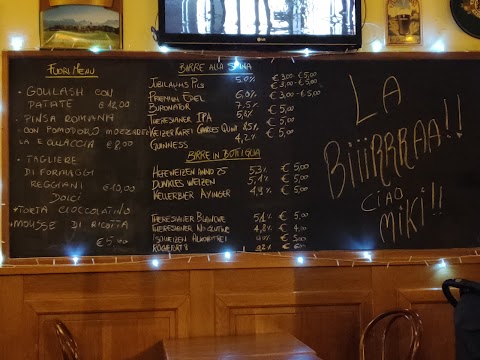 FUORI MENU
• GOULASH CON
PATATE € 18,00
• PINSA ROMANA
CON POMODORO MOZZARELLA
LA E € 8,00
• TAGLIERE
DI FORMAGGI
REGGIANI
€ 13,00
DOLCI
• TORTA CIOCCOLATINO
• MOUSSE DI RICOTTA
€ 5,00
BIRRE ALLA SPINA
JUBILAUMS PILS 5,0% € 3,00 - € 5,00
PREMIUM EDEL 6,0% € 3,00 - € 5,00
7,5% € 3,00 - € 5,00
THERESIANER IPA € 5,00
KEIZER KAREL CHARLES QUINT 8,5% € 5,00
GUINNESS 4,2% € 5,00
BIRRE IN BOTTIGLIA
HEFEWEIZEN ANNO 25 5,3% € 5,00
DUNKLES WEIZEN 5,1% € 5,00
KELLERBIER AYINGER 4,9% € 5,00
THERESIANER BLANCHE 5,1% € 5,00
THERESIANER 4,8% € 5,00
€ 5,00
LA
BIIIRRRAA!!
CIAO
MIKI!!
LG